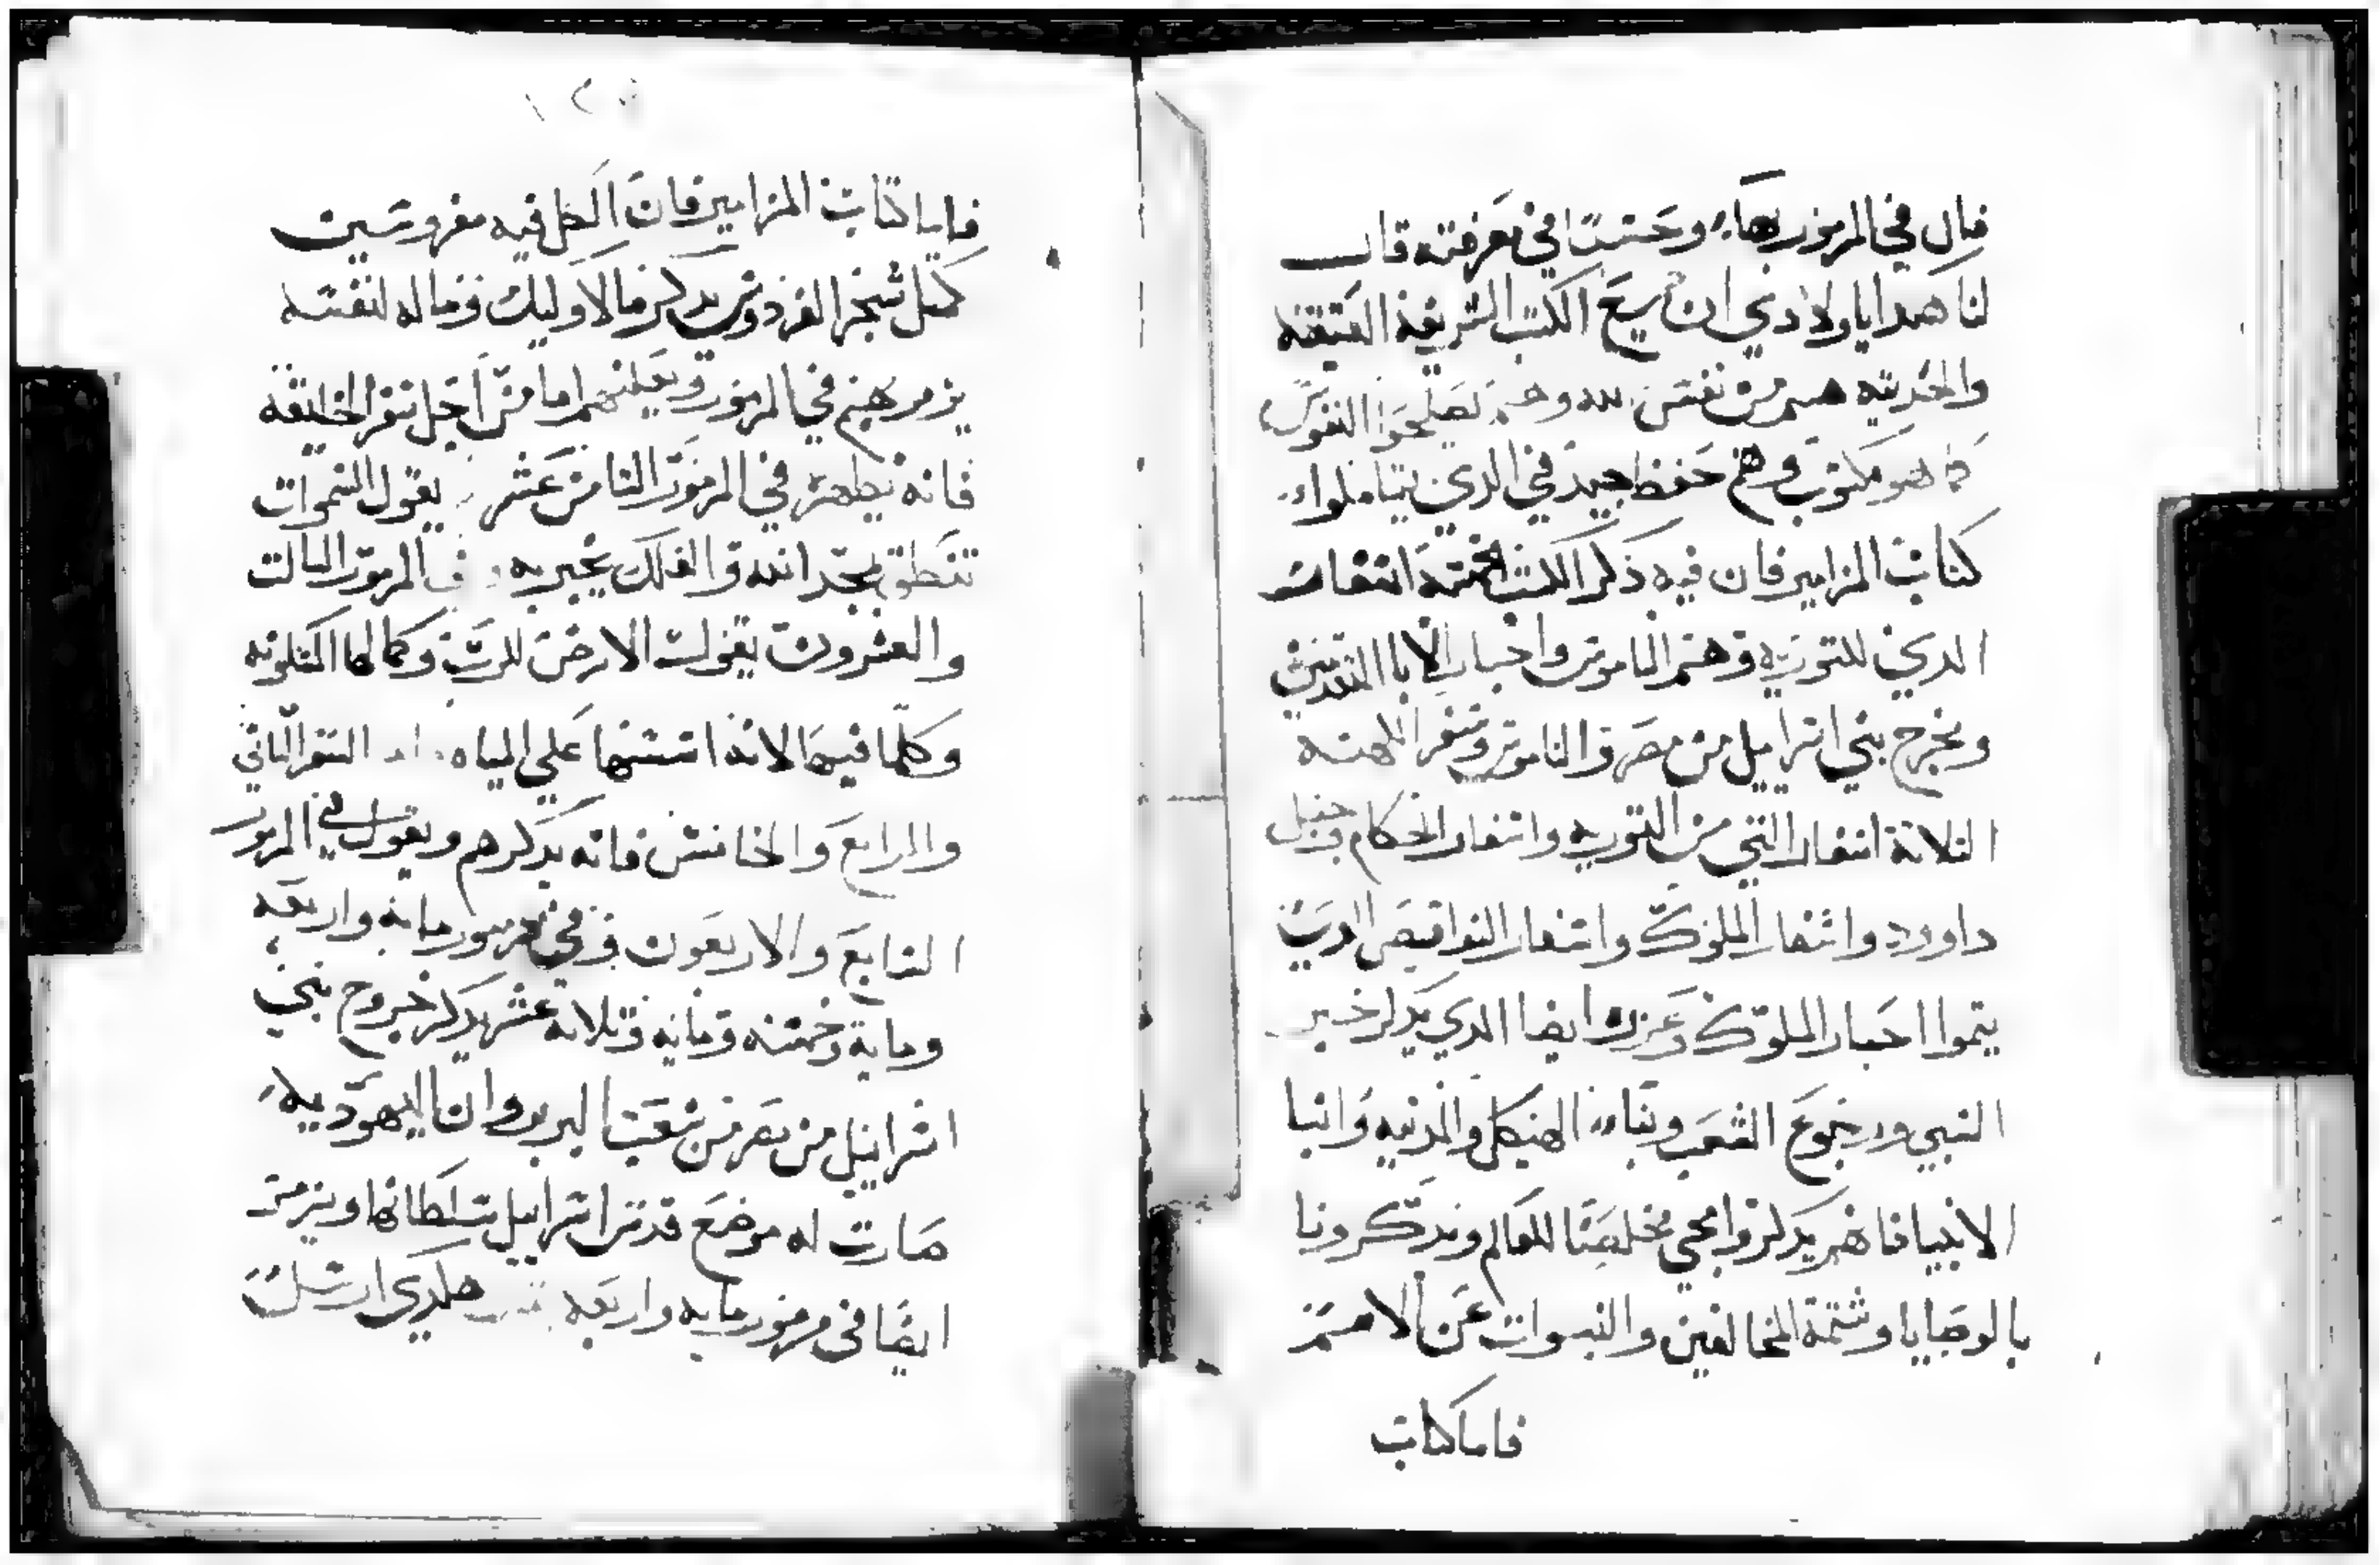 قال في المزمور بهاء وحسنا في معرفته قال
لنا هدايا ولادي ان جميع الكتب الشريفة العتيقة
والحديثه هم من نفس الله وهم يصلحوا النفوس
كما هو مكتوب وهم حفظ جيد في الدي يتاملواء
كتاب المزامير فان فيه ذكر الكتب الخمسة اسفار
الدي للتوريه وهم الناموس واخبار الابا القديسين
ونخرج بني اسراييل من مصر والناموس وسفر الكهنه
الثلاثة اسفار التي من التوريه واسفار الحكام
داوود واسفار الملوك واسفار النواقيص الدين
يتموا اخبار الملوك وعزرا ايضا الدي يدكر خبر
النبي ورجوع الشعب وبناء الهيكل والمدينه وانبا
الانبيا فانهم يدكروا مجي مخلصنا للعالم وتدكرونا
بالوصايا وشتمة المخالفين والنبوات عن الامم
فاما كتاب
١٢٥
فاما كتاب المزامير فان الكل فيه مغروسين
كمثل شجر الفردوس يدكر ما لاوليك وما له لنفسه
يزمر بهم في المزمور ويعلنهم اما من اجل سفر الخليقة
فانه يظهره في المزمور الثامن عشر يقول السموات
تنطق بمجد الله والفلك يخبر به وفي المزمور الثالث
والعشرون يقول الارض للرب وكمالها المسكونه
وكلما فيها لانه اسسها على المياه السفر الثاني
والرابع والخامس فانه يدكرهم ويقول في المزمور
السابع والاربعون وفي مزمور مايه واربعه
ومايه وخمسه ومايه وثلاثة عشر يدكر خروج بني
اسراييل من مصر من شعب البربر وان اليهوديه
صارت له موضع قدس اسراييل سلطانها ويزمر
ايضا في مزمور مايه واربعه هكدي ارسل